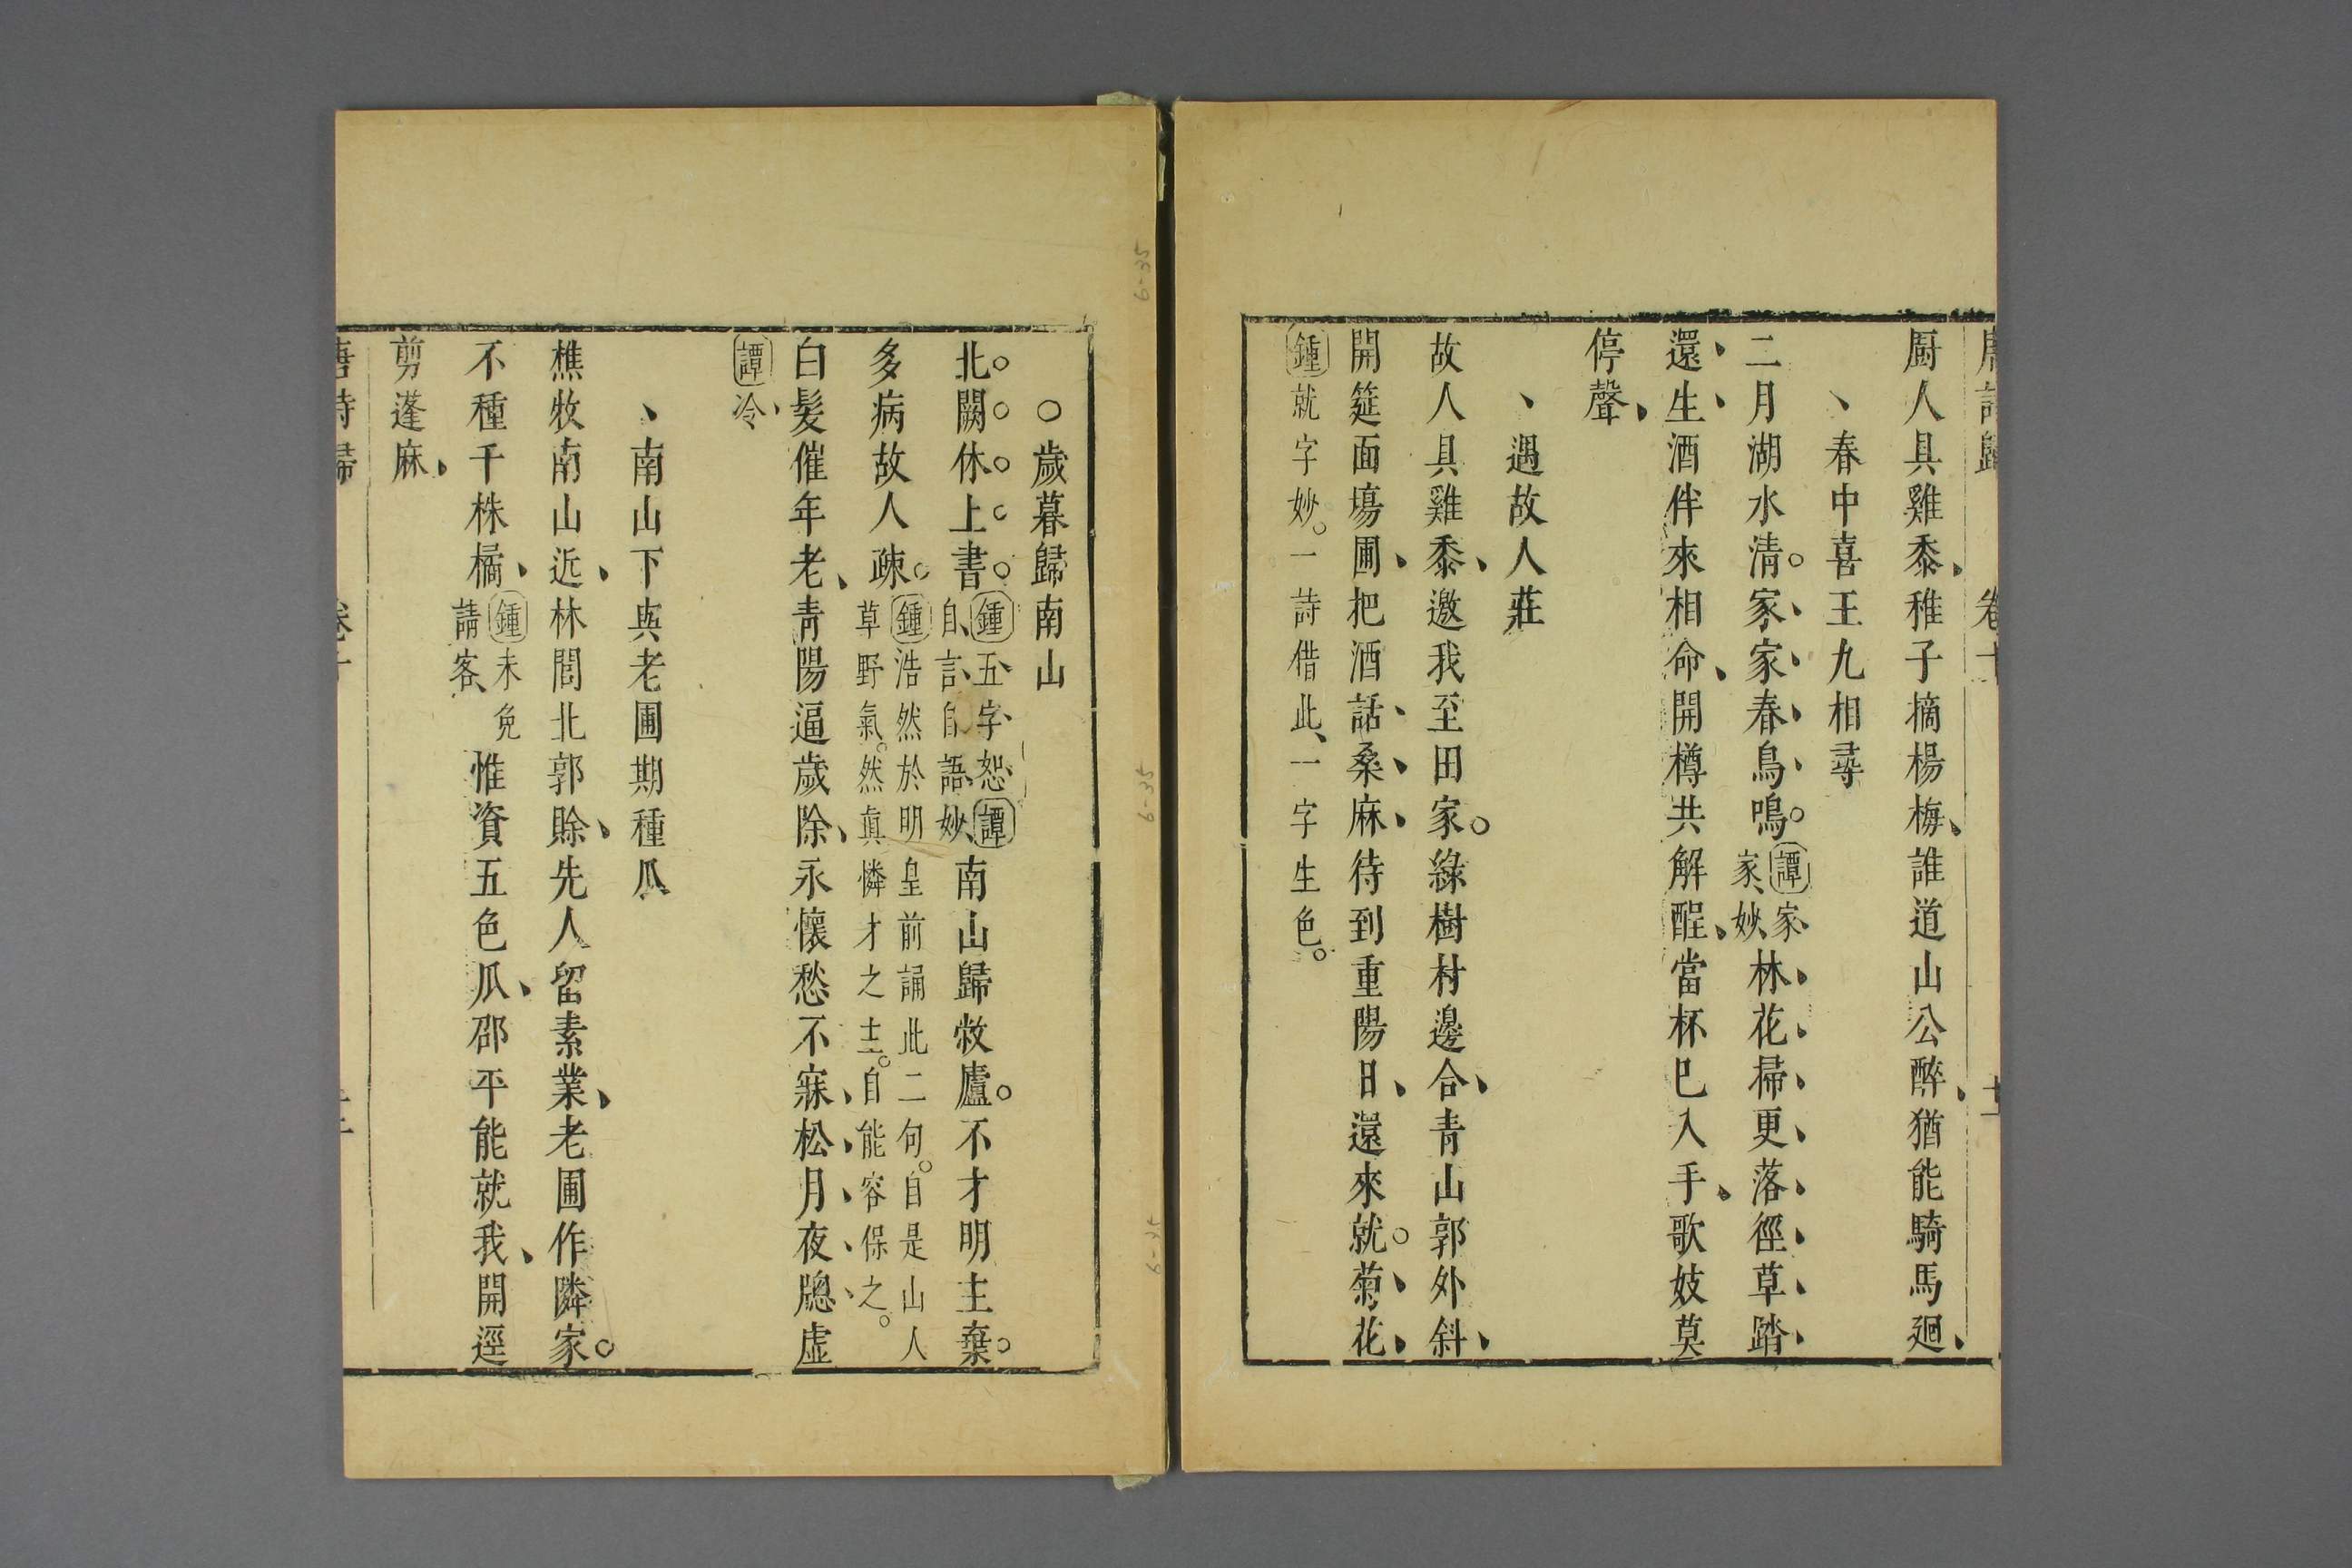 廚人具雞黍、稚子摘楊梅、誰道山公醉、猶能騎馬廻、
、春中喜王九相尋
二月湖水清。家家春鳥鳴。譚家家、妙、林花掃更落徑草踏
還生酒伴來相命、開樽共解酲、當杯已入手、歌妓莫
停聲、
、過故人莊
故人具雞黍、邀我至田家。綠樹村邊合、青山郭外斜、
開筵面場圃、把酒話桑麻、待到重陽日、還來就。菊花、
鍾就字妙。一詩借此、一字生色。
〇歲暮歸南山
北闕休上書鍾五字恕譚自言自語妙、南山歸敝廬。不才明主棄。
多病故人疎。鍾浩然於明皇前誦此二句。自是山人草野氣。然眞憐才之主。自能容保之。
白髮催年老、青陽逼歲除、永懷愁不寐、松月夜牎虛
譚冷、
、南山下與老圃期種瓜
樵牧南山近、林閭北郭賖、先人留素業、老圃作隣家。
不種千株橘、鍾未免請客、惟資五色瓜、邵平能就我、開逕
剪蓬麻、
唐詩歸